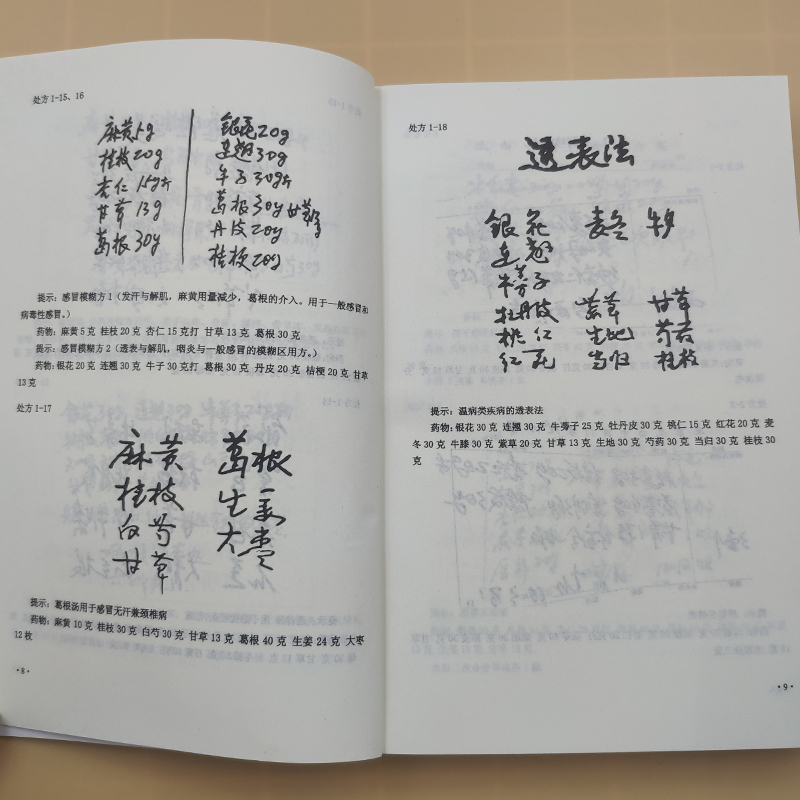 处方 1-15、16
麻黄5g
桂枝20g
杏仁 15g打
甘草 13g
葛根 30g
银花20g
连翘30g
牛子30g打
葛根30g 甘草13g
丹皮20g
桔梗20g
提示：感冒模糊方 1（发汗与解肌，麻黄用量减少，葛根的介入。用于一般感冒和
病毒性感冒。）
药物：麻黄 5 克 桂枝 20 克 杏仁 15 克打 甘草 13 克 葛根 30 克
提示：感冒模糊方 2（透表与解肌，咽炎与一般感冒的模糊区用方。）
药物：银花 20 克 连翘 30 克 牛子 30 克打 葛根 30 克 丹皮 20 克 桔梗 20 克 甘草
13 克
处方 1-17
麻黄 葛根
桂枝 生姜
白芍 大枣
甘草
提示：葛根汤用于感冒无汗兼颈椎病
药物：麻黄 10 克 桂枝 30 克 白芍 30 克 甘草 13 克 葛根 40 克 生姜 24 克 大枣
12 枚
·8·
处方 1-18
透表法
银花 麦冬 牛夕
连翘
牛蒡子
牡丹皮 紫草 甘草
桃仁 生地 芍药
红花 当归 桂枝
提示：温病类疾病的透表法
药物：银花 30 克 连翘 30 克 牛蒡子 25 克 牡丹皮 30 克 桃仁 15 克 红花 20 克 麦
冬 30 克 牛膝 30 克 紫草 20 克 甘草 13 克 生地 30 克 芍药 30 克 当归 30 克 桂枝 30
克
·9·